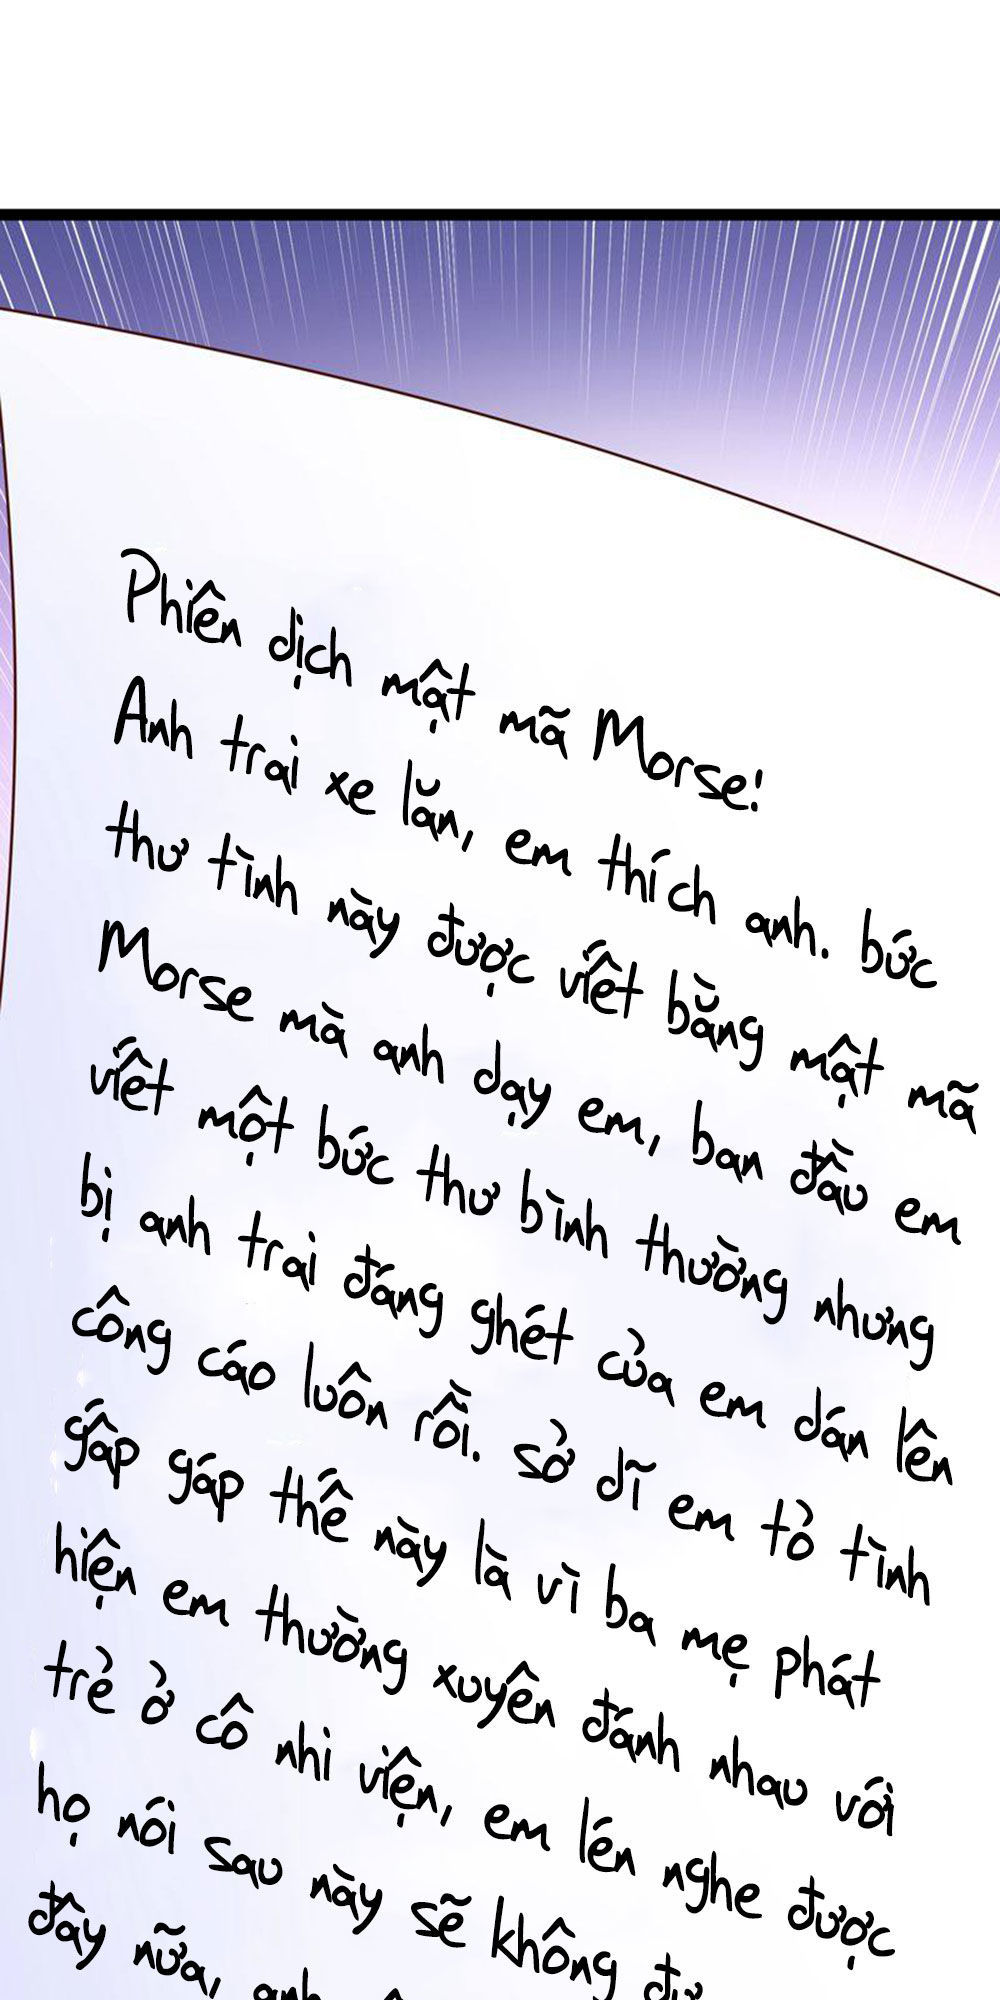 Phiên dịch mật mã Morse!
Anh trai xe lăn, em thích anh. bức
thư tình này được viết bằng mật mã
Morse mà anh dạy em, ban đầu em
viết một bức thư bình thường nhưng
bị anh trai đáng ghét của em dán lên
công cáo luôn rồi. sở dĩ em tỏ tình
gấp gáp thế này là vì ba mẹ phát
hiện em thường xuyên đánh nhau với
trẻ ở cô nhi viện, em lén nghe được
họ nói sau này sẽ không
đây nữa, anh